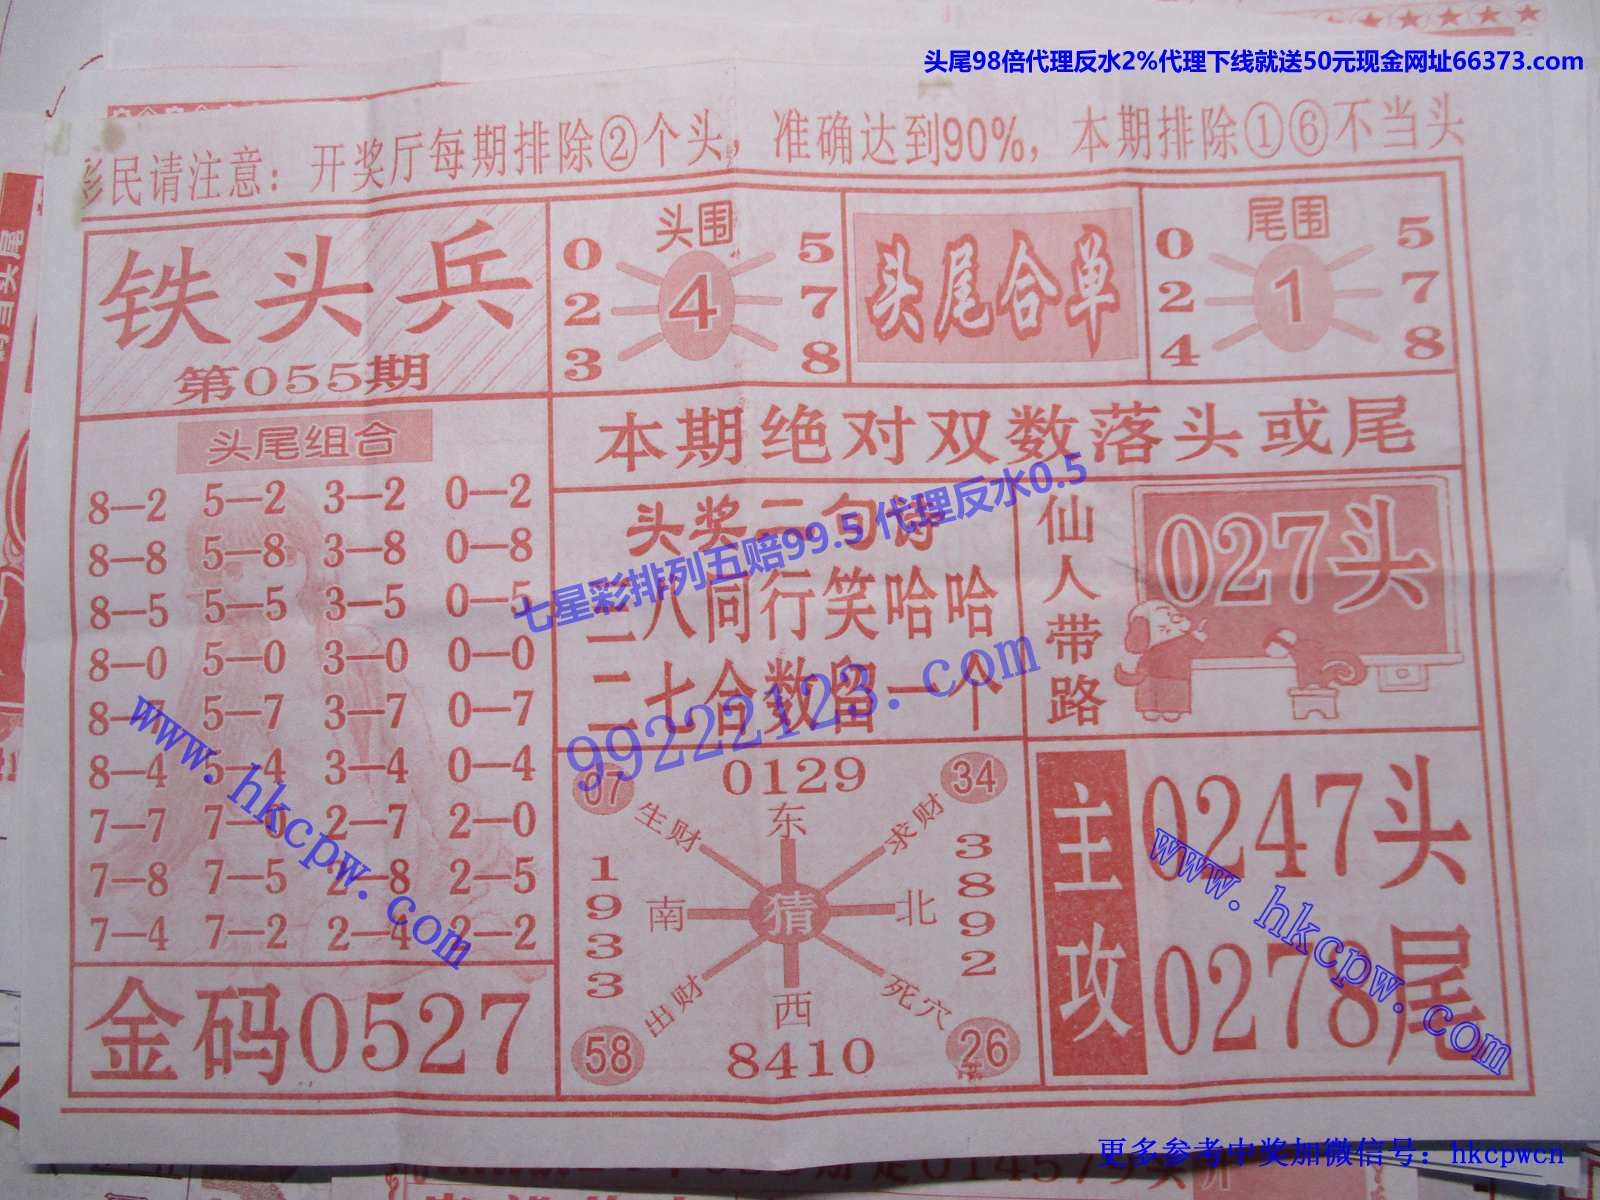 头尾98倍代理反水2%代理下线就送50元现金网址66373.com
彩民请注意：开奖厅每期排除②个头，准确达到90%，本期排除①⑥不当头
铁头兵
第055期
头围
0 2 3
4
5 7 8
头尾合单
尾围
0 2 4
1
5 7 8
本期绝对双数落头或尾
头尾组合
8—2 5—2 3—2 0—2
8—8 5—8 3—8 0—8
8—5 5—5 3—5 0—5
8—0 5—0 3—0 0—0
8—7 5—7 3—7 0—7
8—4 5—4 3—4 0—4
7—7 7—0 2—7 2—0
7—8 7—5 2—8 2—5
7—4 7—2 2—4 2—2
金码0527
头奖二句诗
三八同行笑哈哈
二七合数留一个
仙人带路
027头
07
0129
34
生财
东
求财
1933
南
猜
北
3892
出财
西
死穴
58
8410
26
主攻
0247头
0278尾
七星彩排列五赔99.5 代理反水0.5
99222123.com
www.hkcpw.com
www.hkcpw.com
更多参考中奖加微信号：hkcpwcn